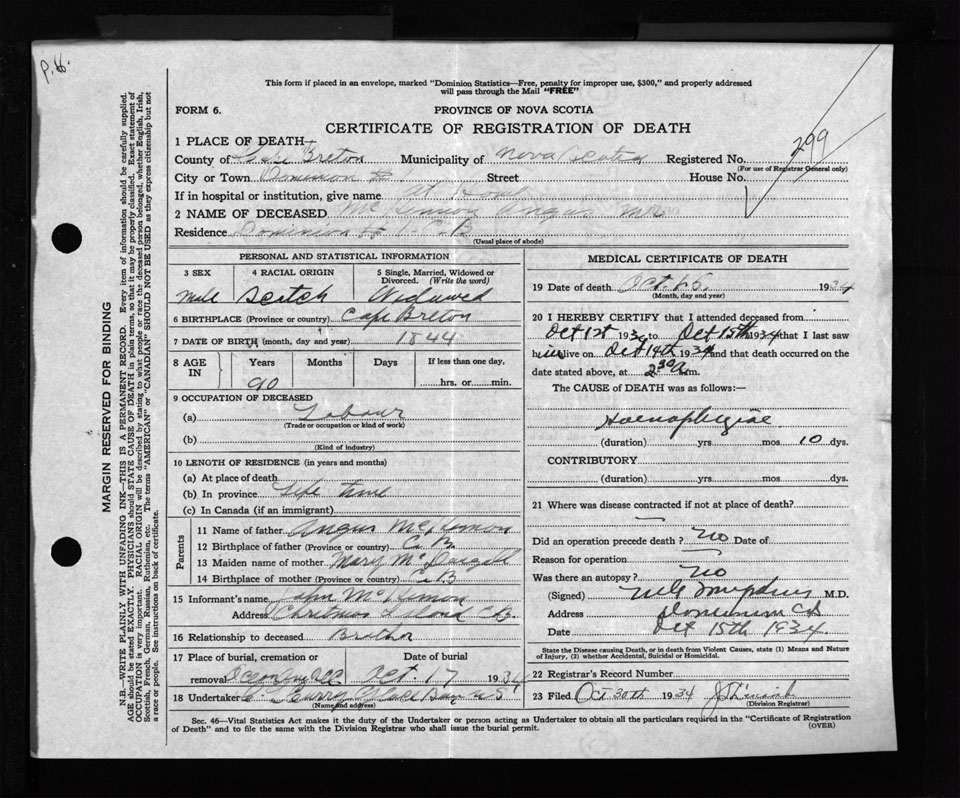 P. 
This form if placed in an envelope, marked "Dominion Statistics—Free, penalty for improper use, $300," and properly addressed
will pass through the Mail "FREE"
FORM 6. PROVINCE OF NOVA SCOTIA
CERTIFICATE OF REGISTRATION OF DEATH
1 PLACE OF DEATH—
County of Cape Breton Municipality of Nova Scotia Registered No. 299
(For use of Registrar General only)
City or Town Dominion Street House No.
If in hospital or institution, give name At Home
2 NAME OF DECEASED Angus
Residence Dominion C. B
(Usual place of abode)
MARGIN RESERVED FOR BINDING
N.B.—WRITE PLAINLY WITH UNFADING INK—THIS IS A PERMANENT RECORD. Every item of information should be carefully supplied.
AGE should be stated EXACTLY. PHYSICIANS should STATE CAUSE OF DEATH in plain terms, so that it may be properly classified. Exact statement of
OCCUPATION is very important. RACIAL ORIGIN will be described by stating to what people or race the deceased person belonged, whether English, Irish,
Scottish, French, German, Russian, Ruthenian, etc. The terms "AMERICAN" or "CANADIAN" SHOULD NOT BE USED as they express citizenship but not
a race or people. See instructions on back of certificate.
PERSONAL AND STATISTICAL INFORMATION
3 SEX 4 RACIAL ORIGIN 5 Single, Married, Widowed or
Divorced. (Write the word)
Male Scotch Widowed
6 BIRTHPLACE (Province or country) Cape Breton
7 DATE OF BIRTH (month, day and year) 1844
8 AGE IN Years Months Days If less than one day,
90 hrs. or min.
9 OCCUPATION OF DECEASED
(a) Labour
(Trade or occupation or kind of work)
(b)
(Kind of industry)
10 LENGTH OF RESIDENCE (in years and months)
(a) At place of death
(b) In province Life time
(c) In Canada (if an immigrant)
Parents
11 Name of father Angus
12 Birthplace of father (Province or country) C. B.
13 Maiden name of mother Mary McDougall
14 Birthplace of mother (Province or country) C. B
15 Informant's name John
Address Christmas Island C B.
16 Relationship to deceased Brother
17 Place of burial, cremation or Date of burial
removal Oct. 17 1934
18 Undertaker Curry Glace Bay N.S.
(Name and address)
MEDICAL CERTIFICATE OF DEATH
19 Date of death Oct. 15, 1934
(Month, day and year)
20 I HEREBY CERTIFY that I attended deceased from
Oct 1st 1934 to Oct 15th 1934 that I last saw
him alive on Oct 14th 1934 and that death occurred on the
date stated above, at 2 30 a m.
The CAUSE OF DEATH was as follows:—
(duration) yrs. mos. 10 dys.
CONTRIBUTORY
(duration) yrs. mos. dys.
21 Where was disease contracted if not at place of death?
—
Did an operation precede death? No Date of
Reason for operation —
Was there an autopsy? No
(Signed) M.D.
Address Dominion C B
Date Oct 15th 1934.
State the Disease causing Death, or in death from Violent Causes, state (1) Means and Nature
of Injury, (2) whether Accidental, Suicidal or Homicidal.
22 Registrar's Record Number
23 Filed Oct 30th 1934
(Division Registrar)
Sec. 46—Vital Statistics Act makes it the duty of the Undertaker or person acting as Undertaker to obtain all the particulars required in the "Certificate of Registration
of Death" and to file the same with the Division Registrar who shall issue the burial permit. (OVER)